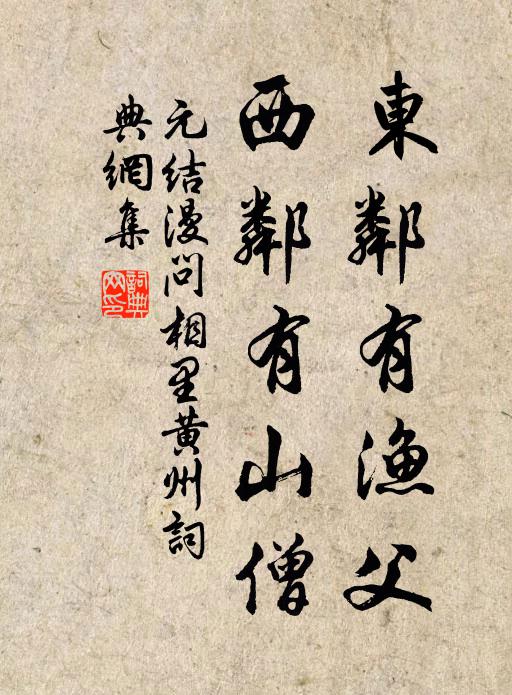 東鄰有漁父
西鄰有山僧
元结漫问相里黄州詞
典網集
詞典
网印